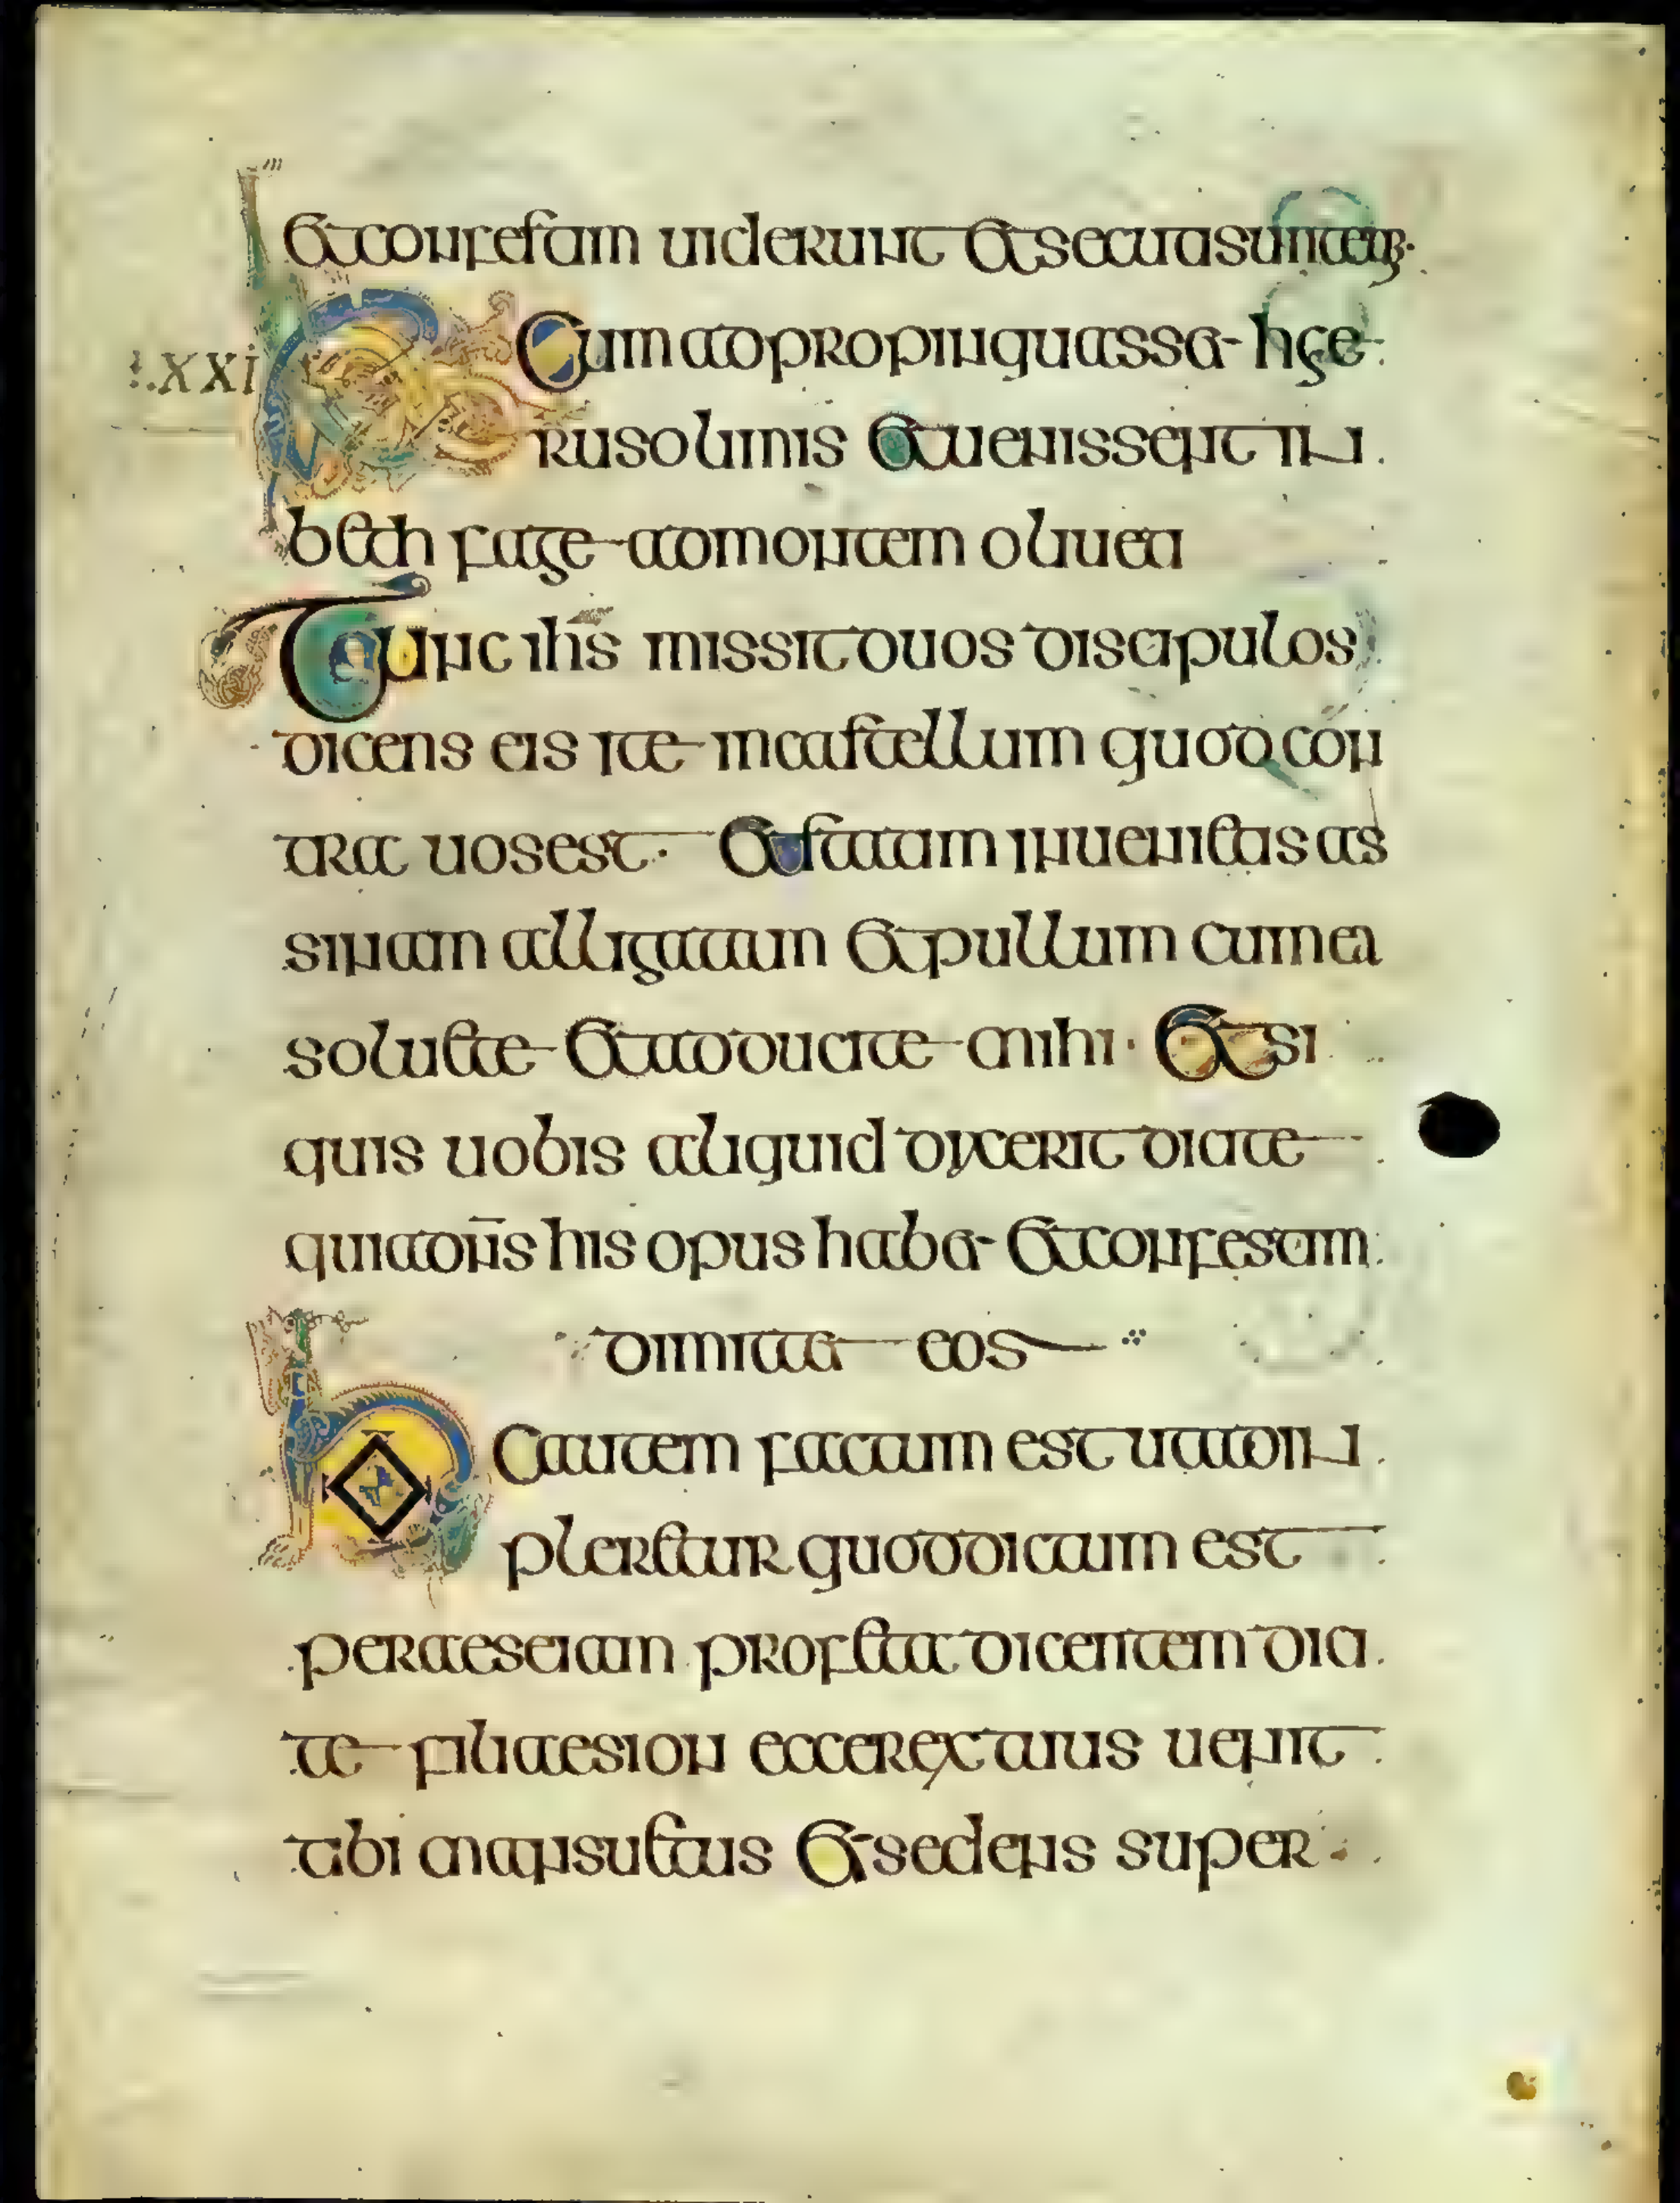 Et confestam uiderunt et secutasuntem
XXI
Et Cum adpropinquasset hie
rusolimis et uenissent in
beth fage ad montem oliueti
Tunc ihs missit duos discipulos
dicens eis ite in castellum quod con
tra uos est · Et statam inuenietis as
sinam alligatam et pullum cum ea
soluite et adducite mihi · Et si
quis uobis aliquid dixerit dicite
quia dns his opus habet et confesam
dimittet eos
hoc autem factum est ut adin
pleretur quod dictum est
per aeseiam profeta dicentem dici
te filiae sion ecce rex tuus uenit
tibi mansuetus et sedens super